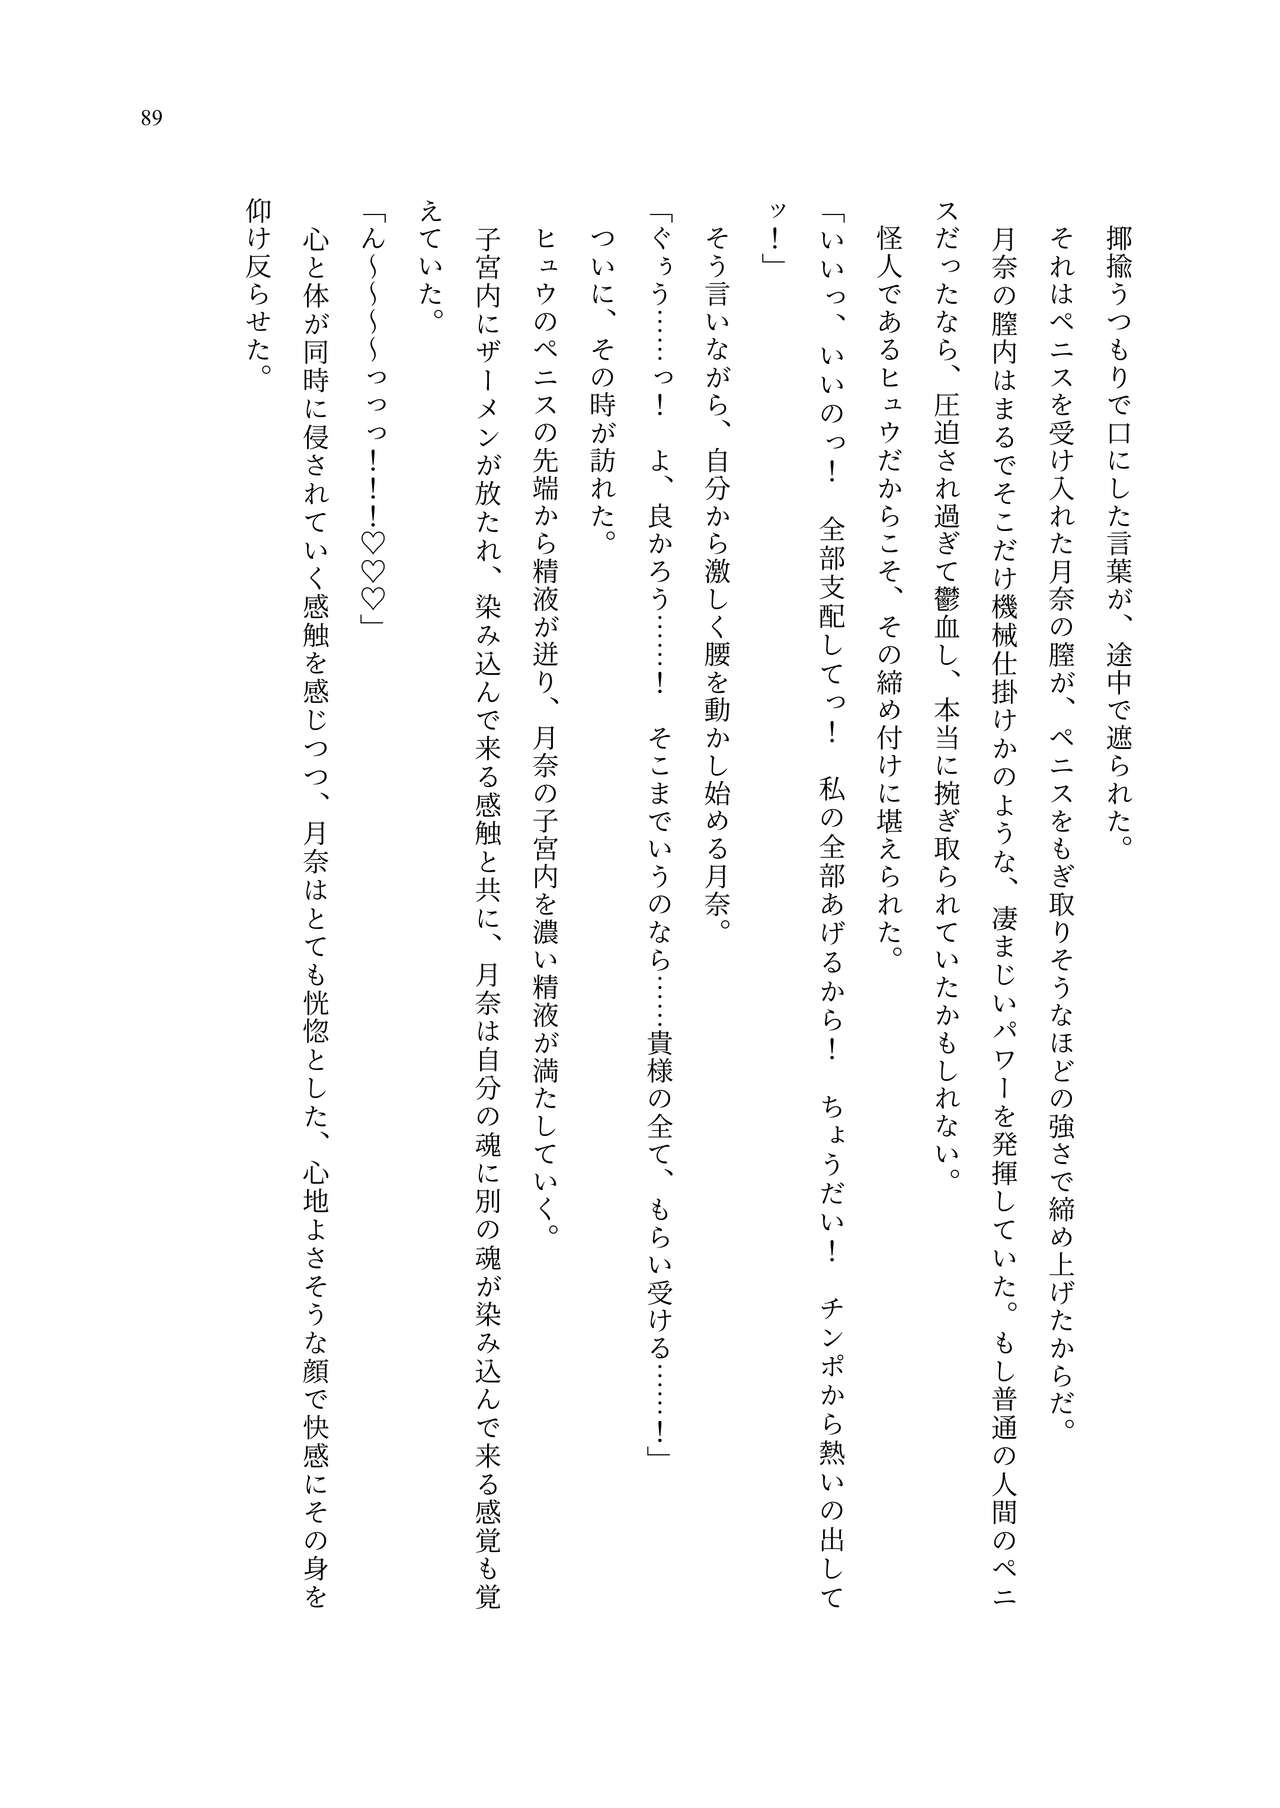 89
揶揄うつもりで口にした言葉が、途中で遮られた。
それはペニスを受け入れた月奈の膣が、ペニスをもぎ取りそうなほどの強さで締め上げたからだ。
月奈の膣内はまるでそこだけ機械仕掛けかのような、凄まじいパワーを発揮していた。もし普通の人間のペニ
スだったなら、圧迫され過ぎて鬱血し、本当に捥ぎ取られていたかもしれない。
怪人であるヒュウだからこそ、その締め付けに堪えられた。
「いいっ、いいのっ！　全部支配してっ！　私の全部あげるから！　ちょうだい！　チンポから熱いの出して
ッ！」
そう言いながら、自分から激しく腰を動かし始める月奈。
「ぐぅう……っ！　よ、良かろう……！　そこまでいうのなら……貴様の全て、もらい受ける……！」
ついに、その時が訪れた。
ヒュウのペニスの先端から精液が迸り、月奈の子宮内を濃い精液が満たしていく。
子宮内にザーメンが放たれ、染み込んで来る感触と共に、月奈は自分の魂に別の魂が染み込んで来る感覚も覚
えていた。
「ん～～～～っっっ！！！♡♡♡」
心と体が同時に侵されていく感触を感じつつ、月奈はとても恍惚とした、心地よさそうな顔で快感にその身を
仰け反らせた。